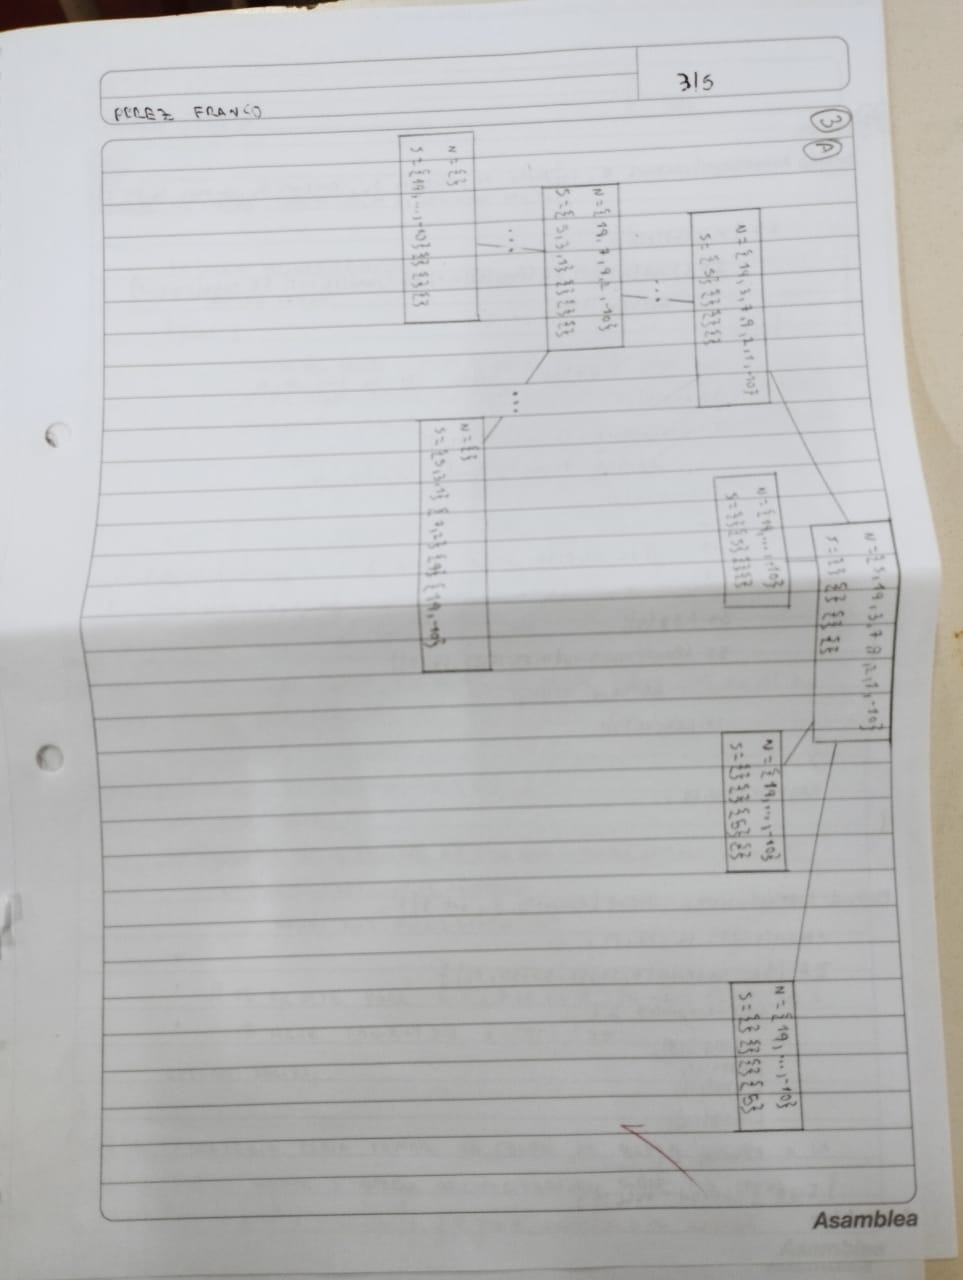 Asamblea
3/5
PEREZ FRANCO
3
A
N={5,19,3,7,9,2,1,-10}
S={}{}{}{}
N={19,3,7,9,2,1,-10}
S={5}{}{}{}
N={19,...,-10}
S={}{5}{}{}
N={19,...,-10}
S={}{}{5}{}
N={19,...,-10}
S={}{}{}{5}
...
N={19,7,9,2,-10}
S={5,3,1}{}{}{}
...
...
N={}
S={19,...,-10}{}{}{}
N={}
S={5,3,1}{7,2}{9}{19,-10}